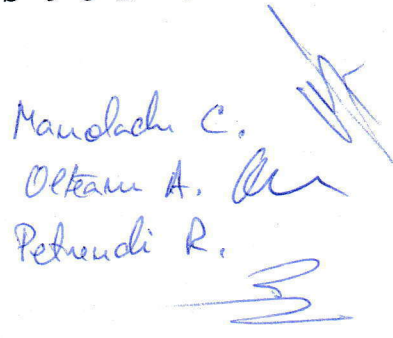 Manolache C.
Olteanu A.
Petrendi R.